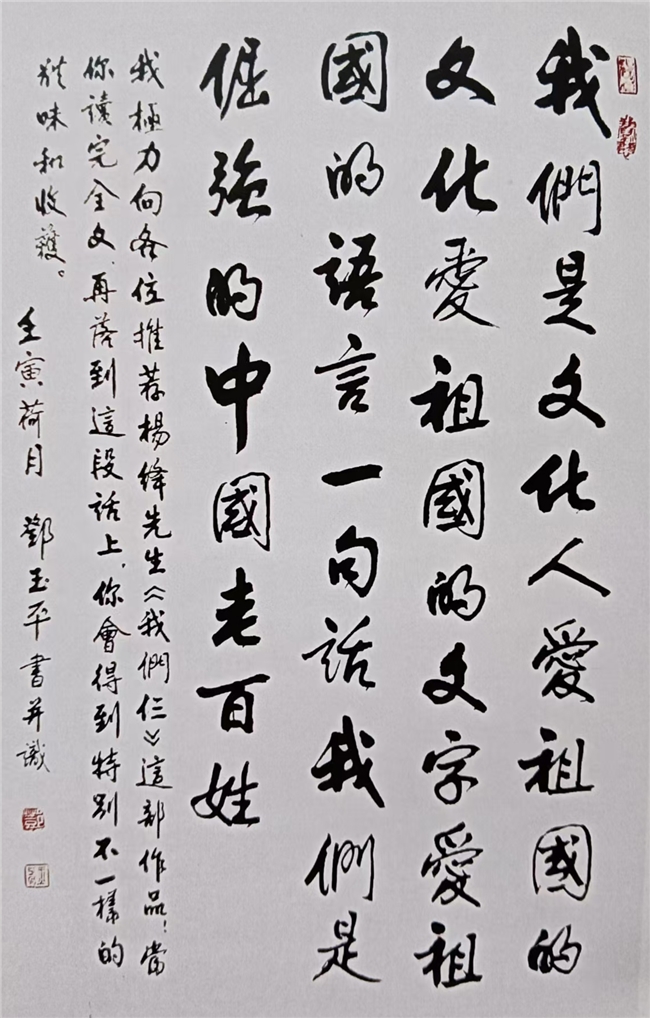 我們是文化人愛祖國的
文化愛祖國的文字愛祖
國的語言一句話我們是
倔強的中國老百姓
我極力向各位推荐楊絳先生《我們仨》這部作品！當
你讀完全文，再落到這段話上，你會得到特别不一樣的
玆味和收穫。
壬寅荷月 鄧玉平書并識